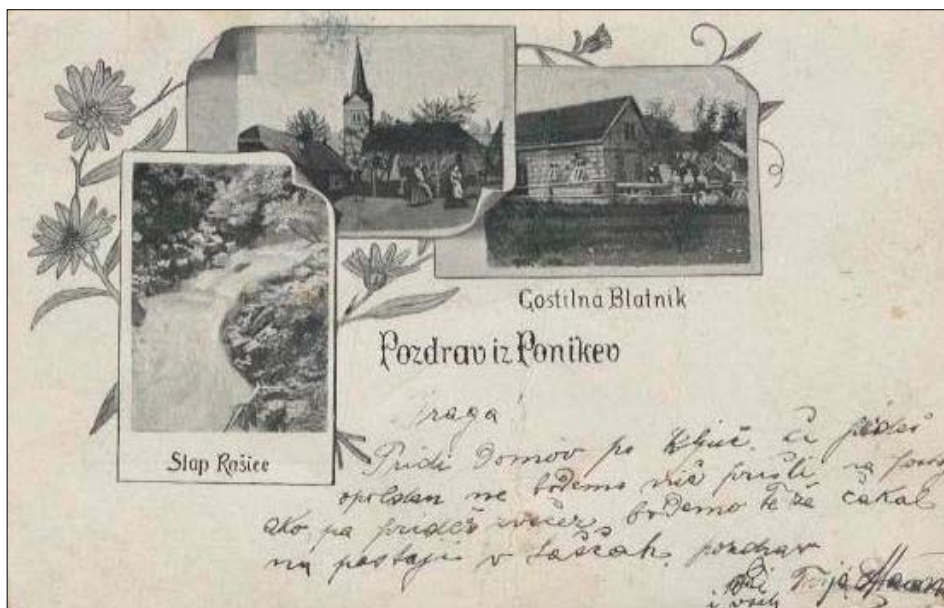 Gostilna Blatnik
Pozdrav iz Ponikev
Slap Rašice
Draga!
Pridi domov po ključ, če prideš
opoldan ne bodemo nič prišli na
ako pa prideš zvečer, bodemo te že čakal
na postaji v Laščah, pozdrav
Tvoja